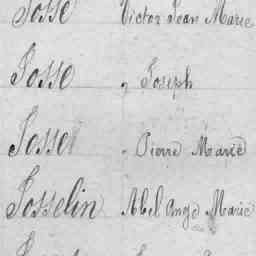 Josse Victor Jean Marie
Josse " Joseph
Josse " Pierre Marie
Josselin Abel Ange Marie